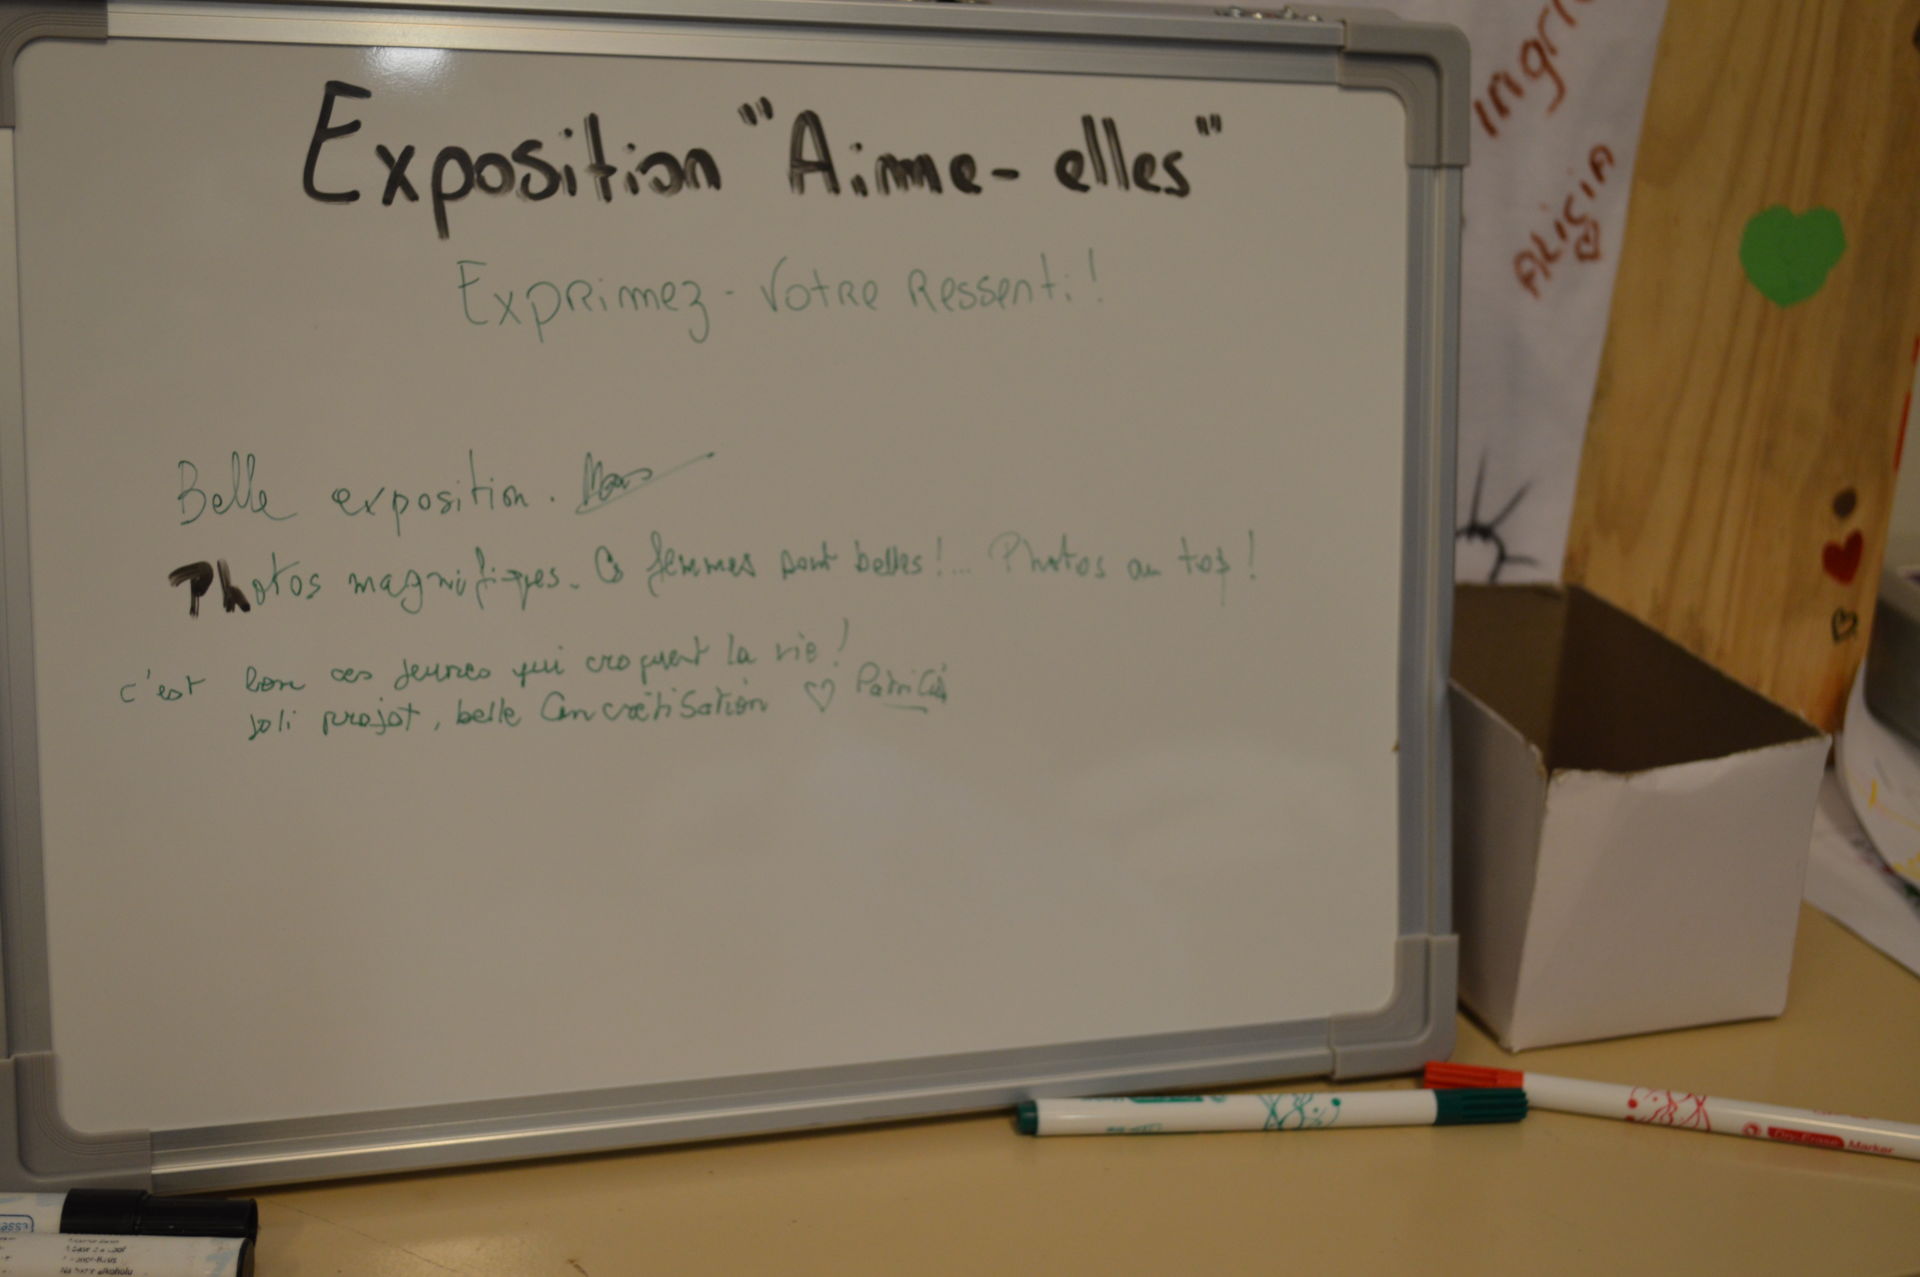 Exposition "Aime-elles"
Exprimez-Votre Ressenti!
Belle exposition.
Photos magnifiques. Ces femmes sont belles!... Photos au top!
c'est bon ces jeunes qui croquent la vie!
Joli projet, belle Concrétisation ♡ Patricia
ALiçiA
Dry-Erase Marker